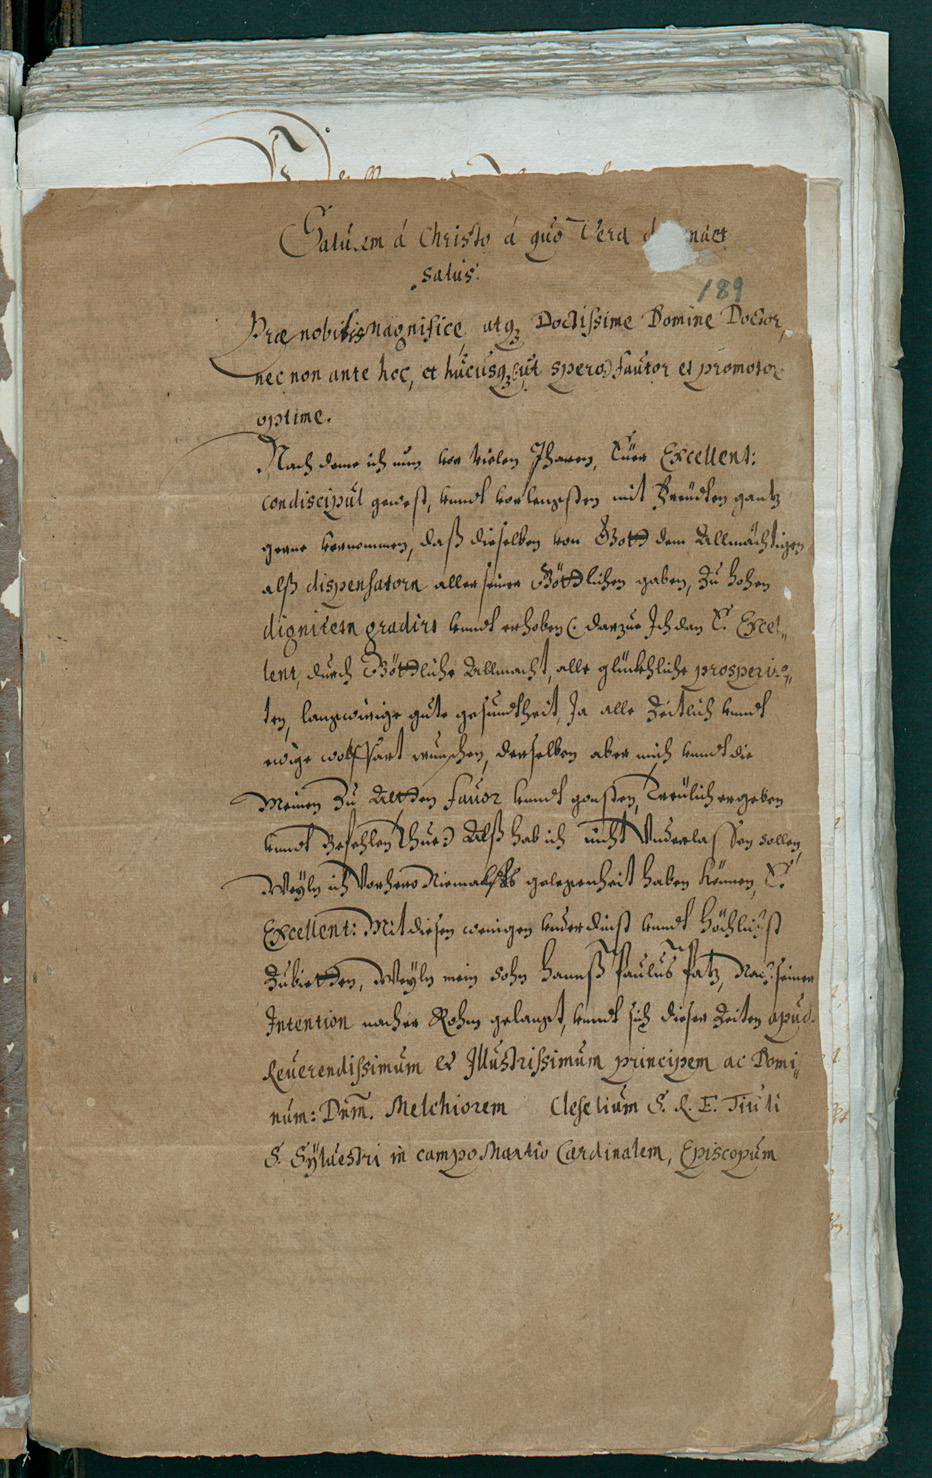 Salutem á Christo á quo Vera
salus.
189
Prænobilis Magnifice, atq₃ Doctissime Domine Doctor,
nec non ante hoc, et hucusq₃ (ut spero) fautor et promotor
optime.
Nach deme ich nun vor vielen Jharen, Euer Excellent:
condiscipul gewest, vnndt vorlengsten mit Freudten gantz
gerne vernommen, daß dieselben von Gott dem Allmächtigen
alß dispensatorn aller seiner Göttlichen gaben, zu hohen
diguiteten gradirt vnndt erhoben (: darzue Ich dan E. Excel„
lent, durch Göttliche Allmacht, alle glückhliche prosperite„
ten, langwirige gute gesundtheit, Ja alle Zeitlich vnndt
ewige wolffart wunschen, derselben aber mich vnndt die
Meinen zu Altten favor vnndt gonsten, Treulich ergeben
vnndt Befehlen Thue:) Alß hab ich nicht Vnderlassen sollen,
Weyln ich Vorhero Niemalß gelegenheit haben können, E.
Excellent: Mit diesen wenigen vnndt Höchlichst
Zubietten, Weyln mein sohn Hannß Paulus Patz, Nach seiner
Intention nacher Rohm gelangt, vnndt sich dieser Zeiten apud.
Reuerendissimum et Illustrissimum principem ac Domi„
num: Dnm. Melchiorem Cleselium S. R. E. Tituli
S. Syluestri in campo Martio Cardinalem, Episcopum